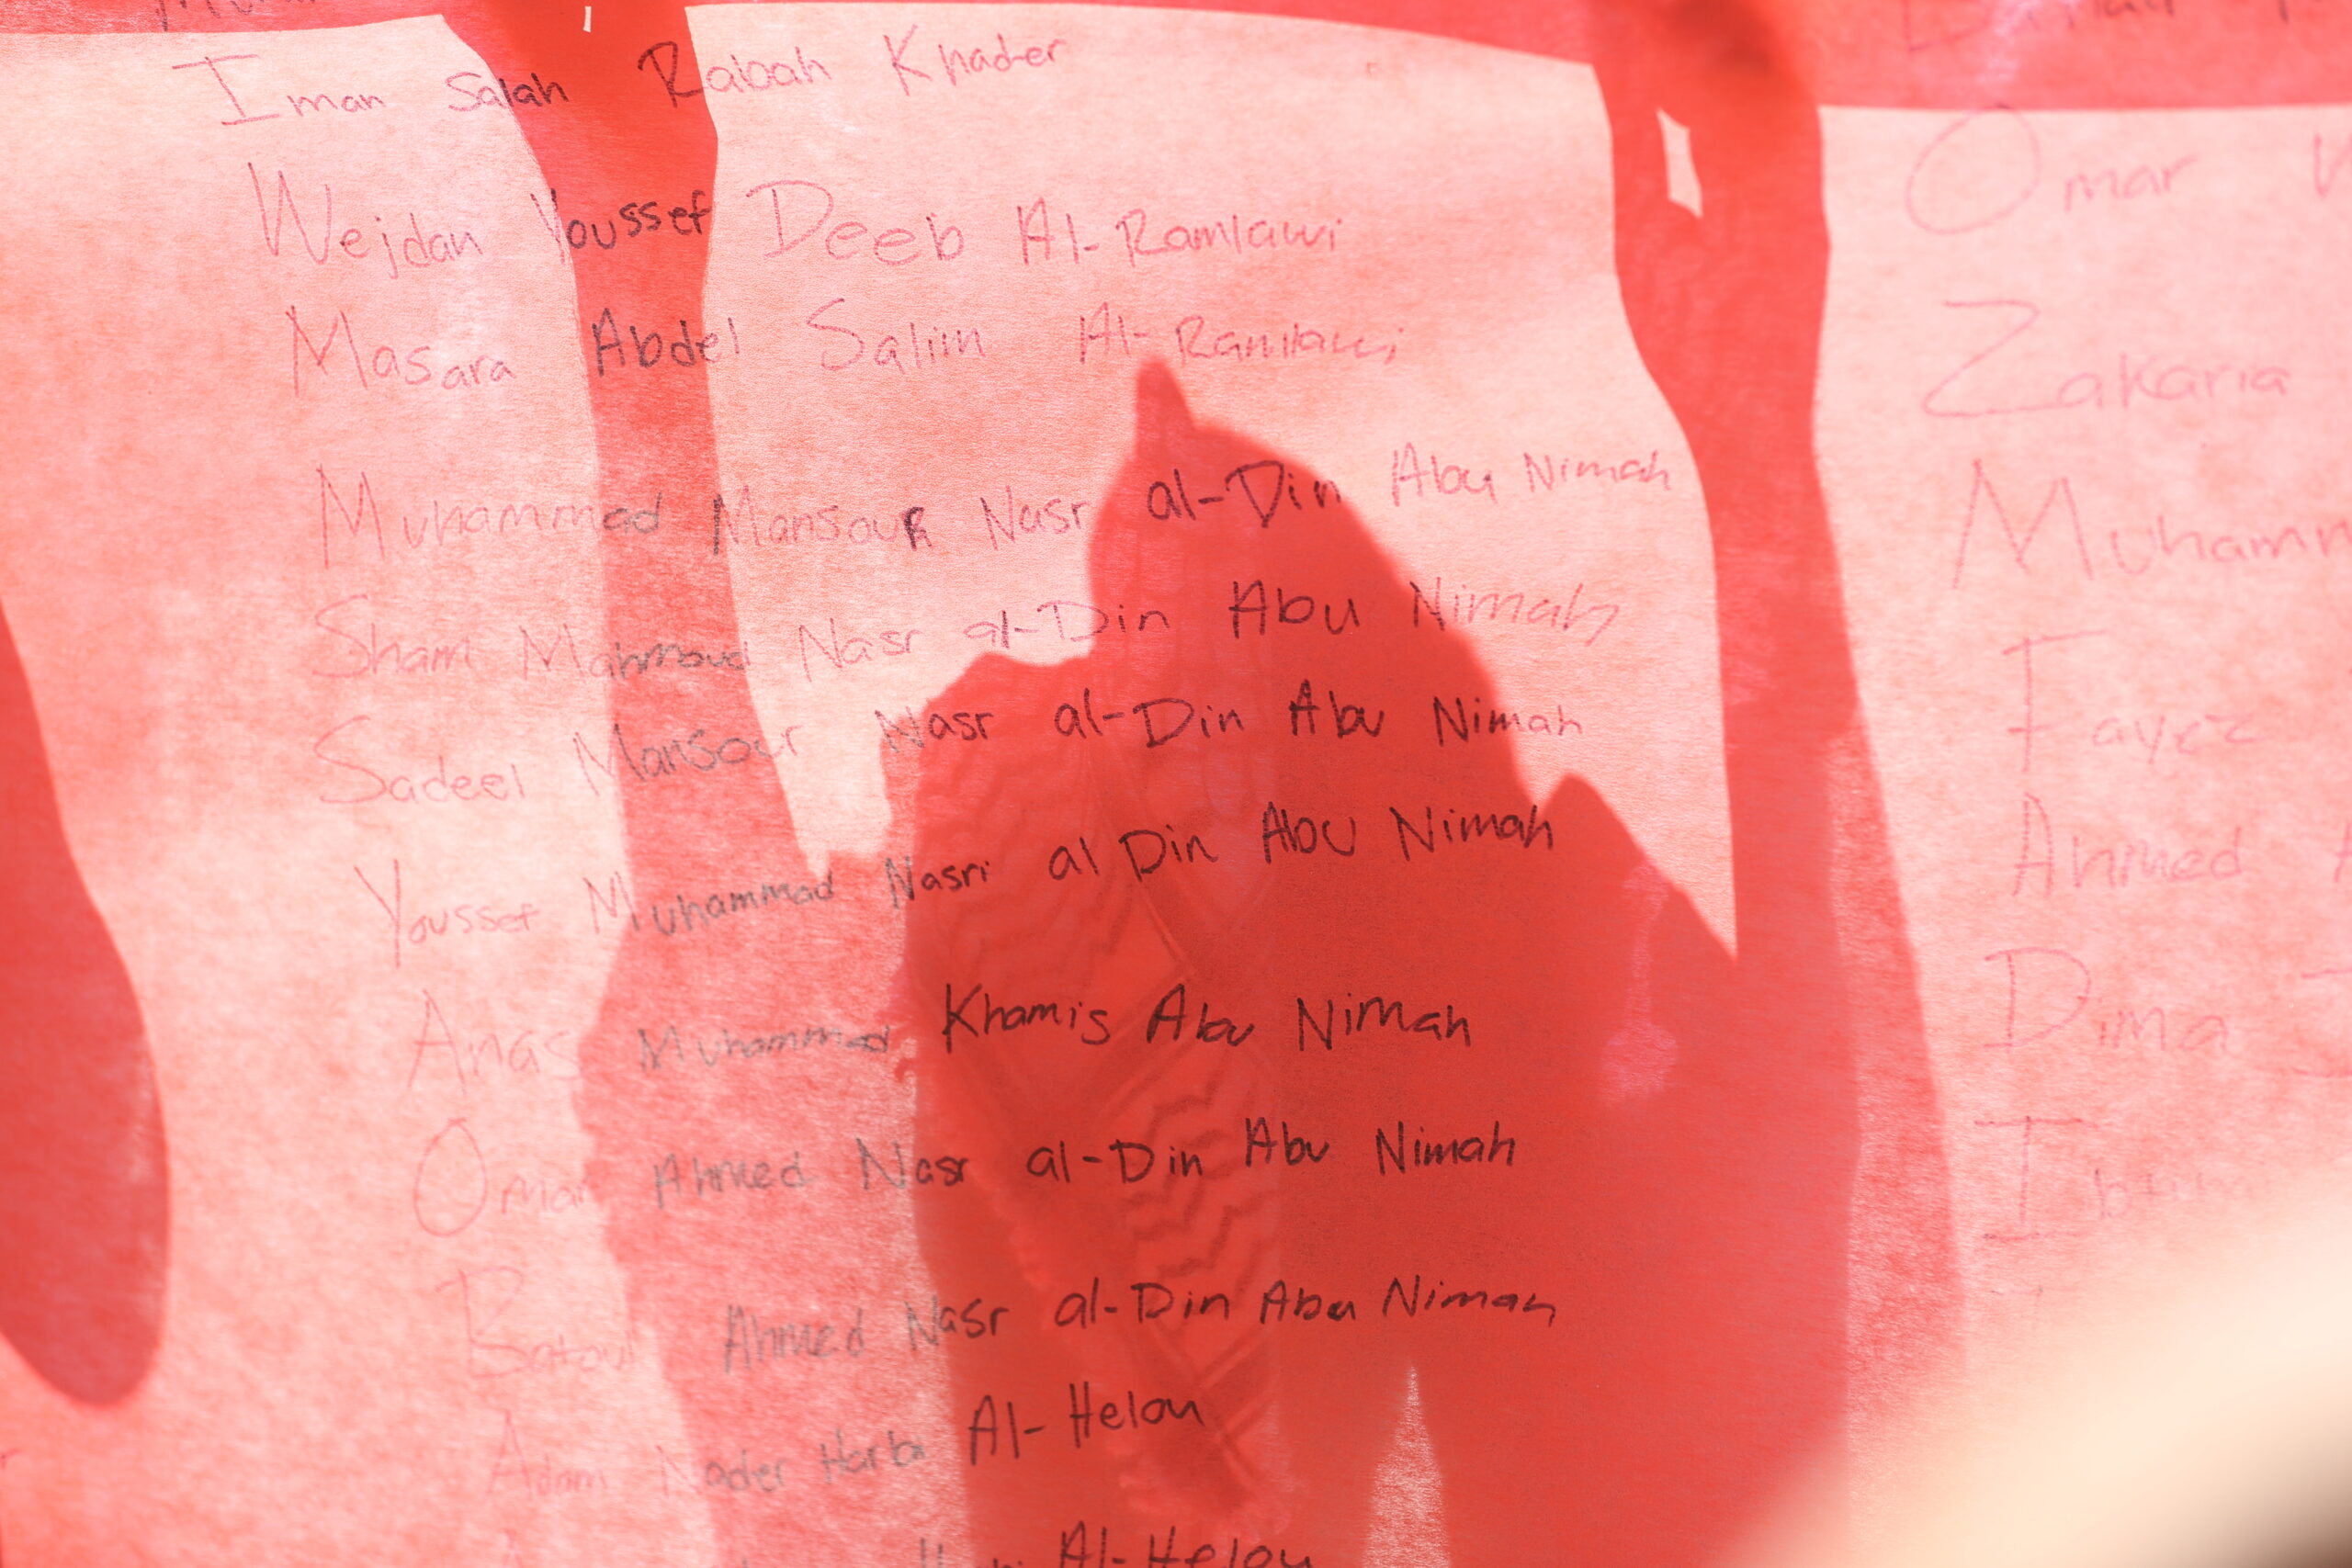 Iman Salah Rabah Khader
Wejdan Youssef Deeb Al-Ramlawi
Masara Abdel Salim Al-Ramlawi
Muhammad Mansour Nasr al-Din Abu Nimah
Sham Mahmoud Nasr al-Din Abu Nimah
Sadeel Mansour Nasr al-Din Abu Nimah
Youssef Muhammad Nasri al Din Abu Nimah
Anas Muhammad Khamis Abu Nimah
Omar Ahmed Nasr al-Din Abu Nimah
Batoul Ahmed Nasr al-Din Abu Nimah
Adam Nader Harbi Al-Helou
Al-Helou
Omar
Zakaria
Muhamm
Fayez
Ahmed
Dima